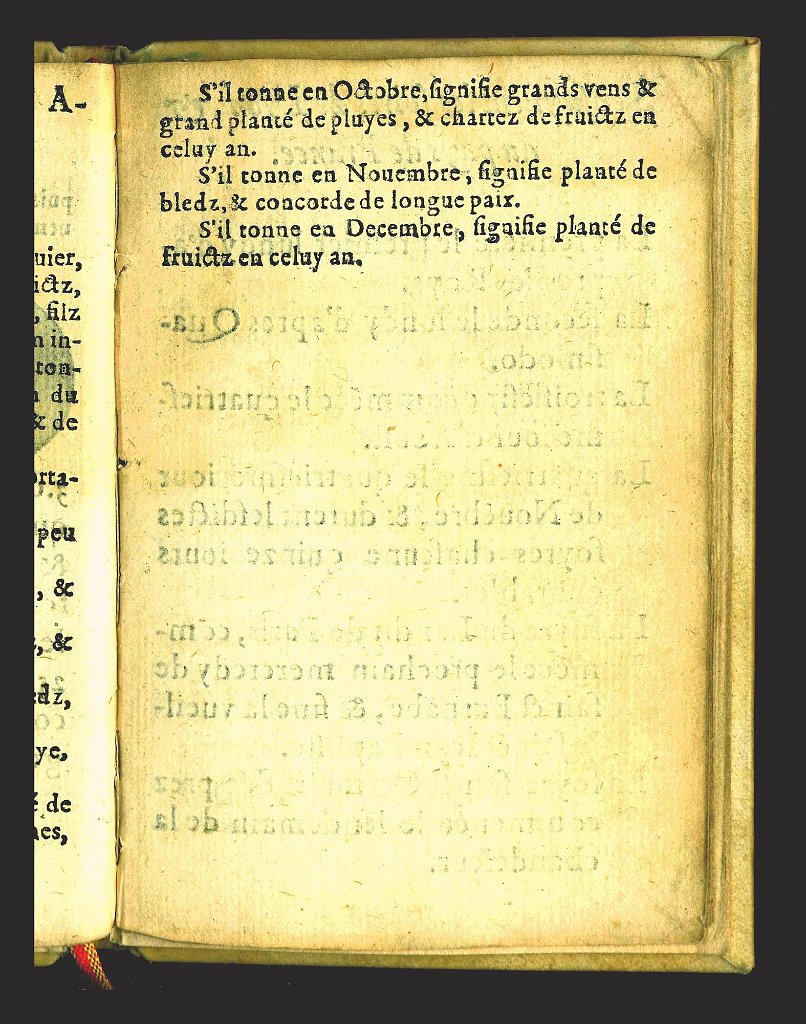 A-
uier,
ictz,
, filz
n in-
ton-
n du
& de
orta-
peu
, &
, &
edz,
ye,
é de
nes,
S'il tonne en Octobre, signifie grands vens &
grand planté de pluyes, & chartez de fruictz en
celuy an.
S'il tonne en Nouembre, signifie planté de
bledz, & concorde de longue paix.
S'il tonne en Decembre, signifie planté de
fruictz en celuy an.